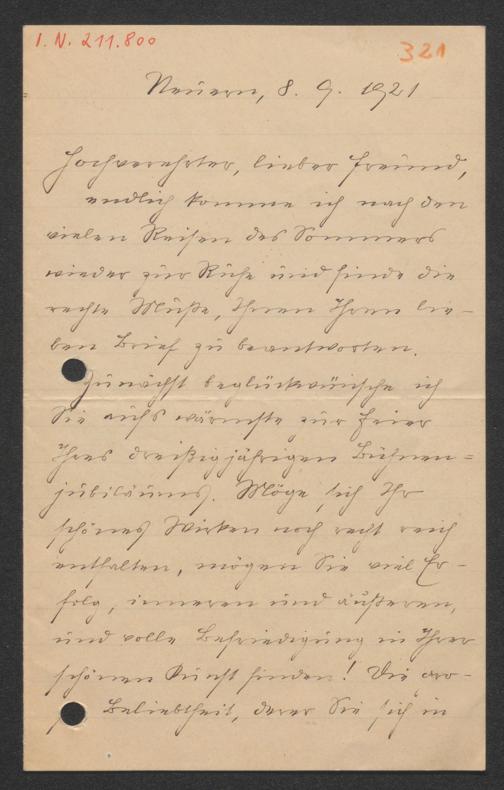 I. N. 211.800
321
Neuern, 8. 9. 1921
Hochverehrter, lieber Freund,
endlich komme ich nach den
vielen Reisen des Sommers
wieder zur Ruhe und finde die
rechte Muße, Ihnen Ihren lie-
ben Brief zu beantworten.
Zunächst beglückwünsche ich
Sie aufs wärmste zur Feier
Ihres dreißigjährigen Bühnen=
jubiläums. Möge sich Ihr
schönes Wirken noch recht reich
entfalten, mögen Sie viel Er-
folg, inneren und äußeren,
und volle Befriedigung in Ihrer
schönen Kunst finden! Die gro-
Beliebtheit, derer Sie sich in